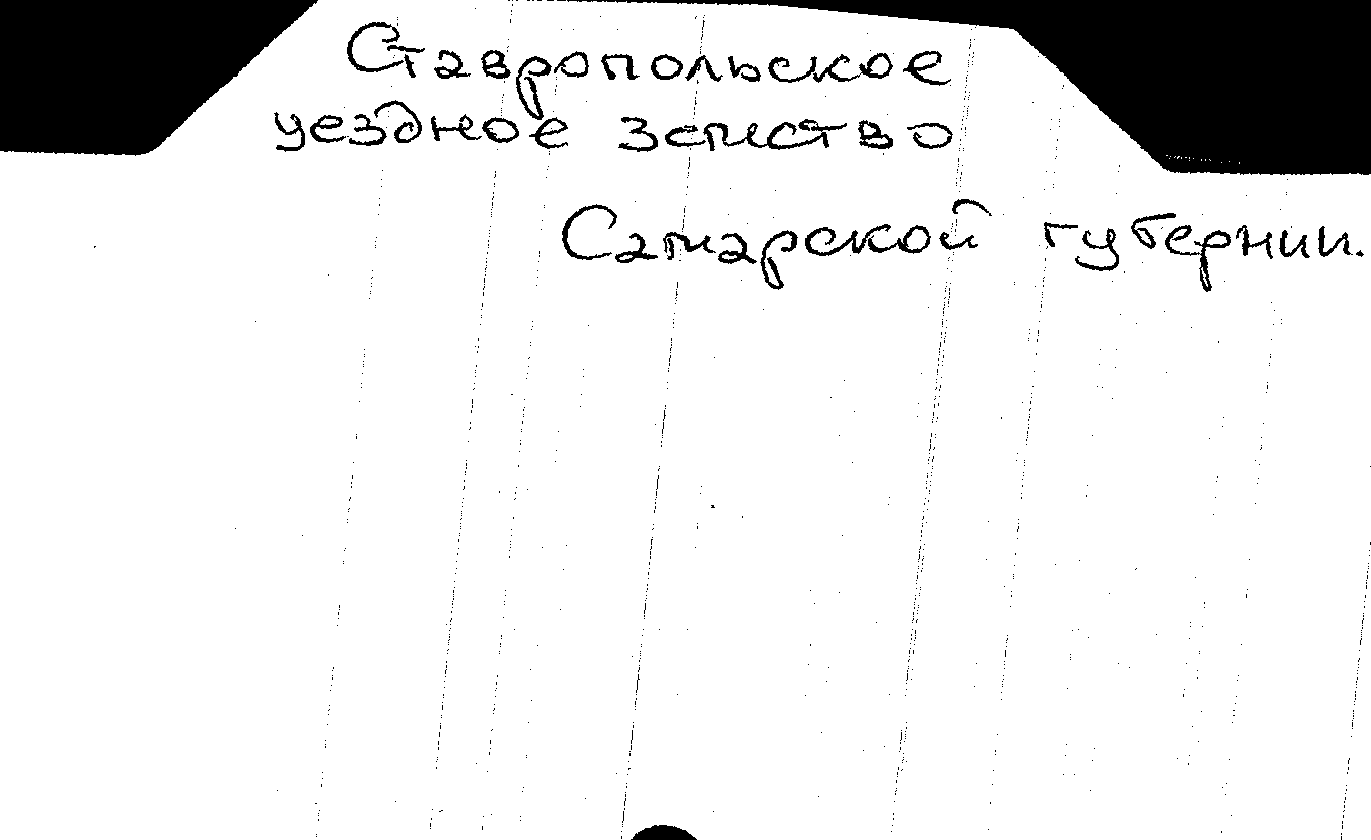 Ставропольское
уездное земство
Самарской губернии.